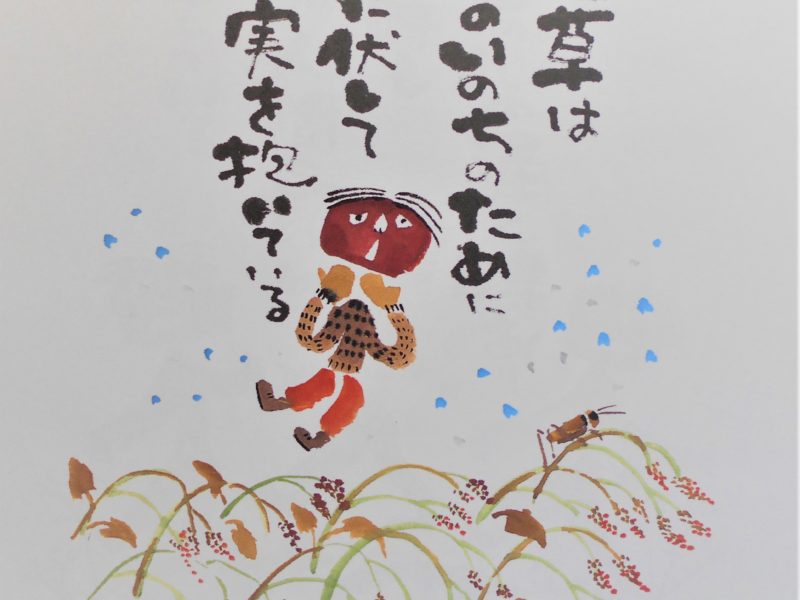 草は
のいのちのために
伏して
実を抱いている